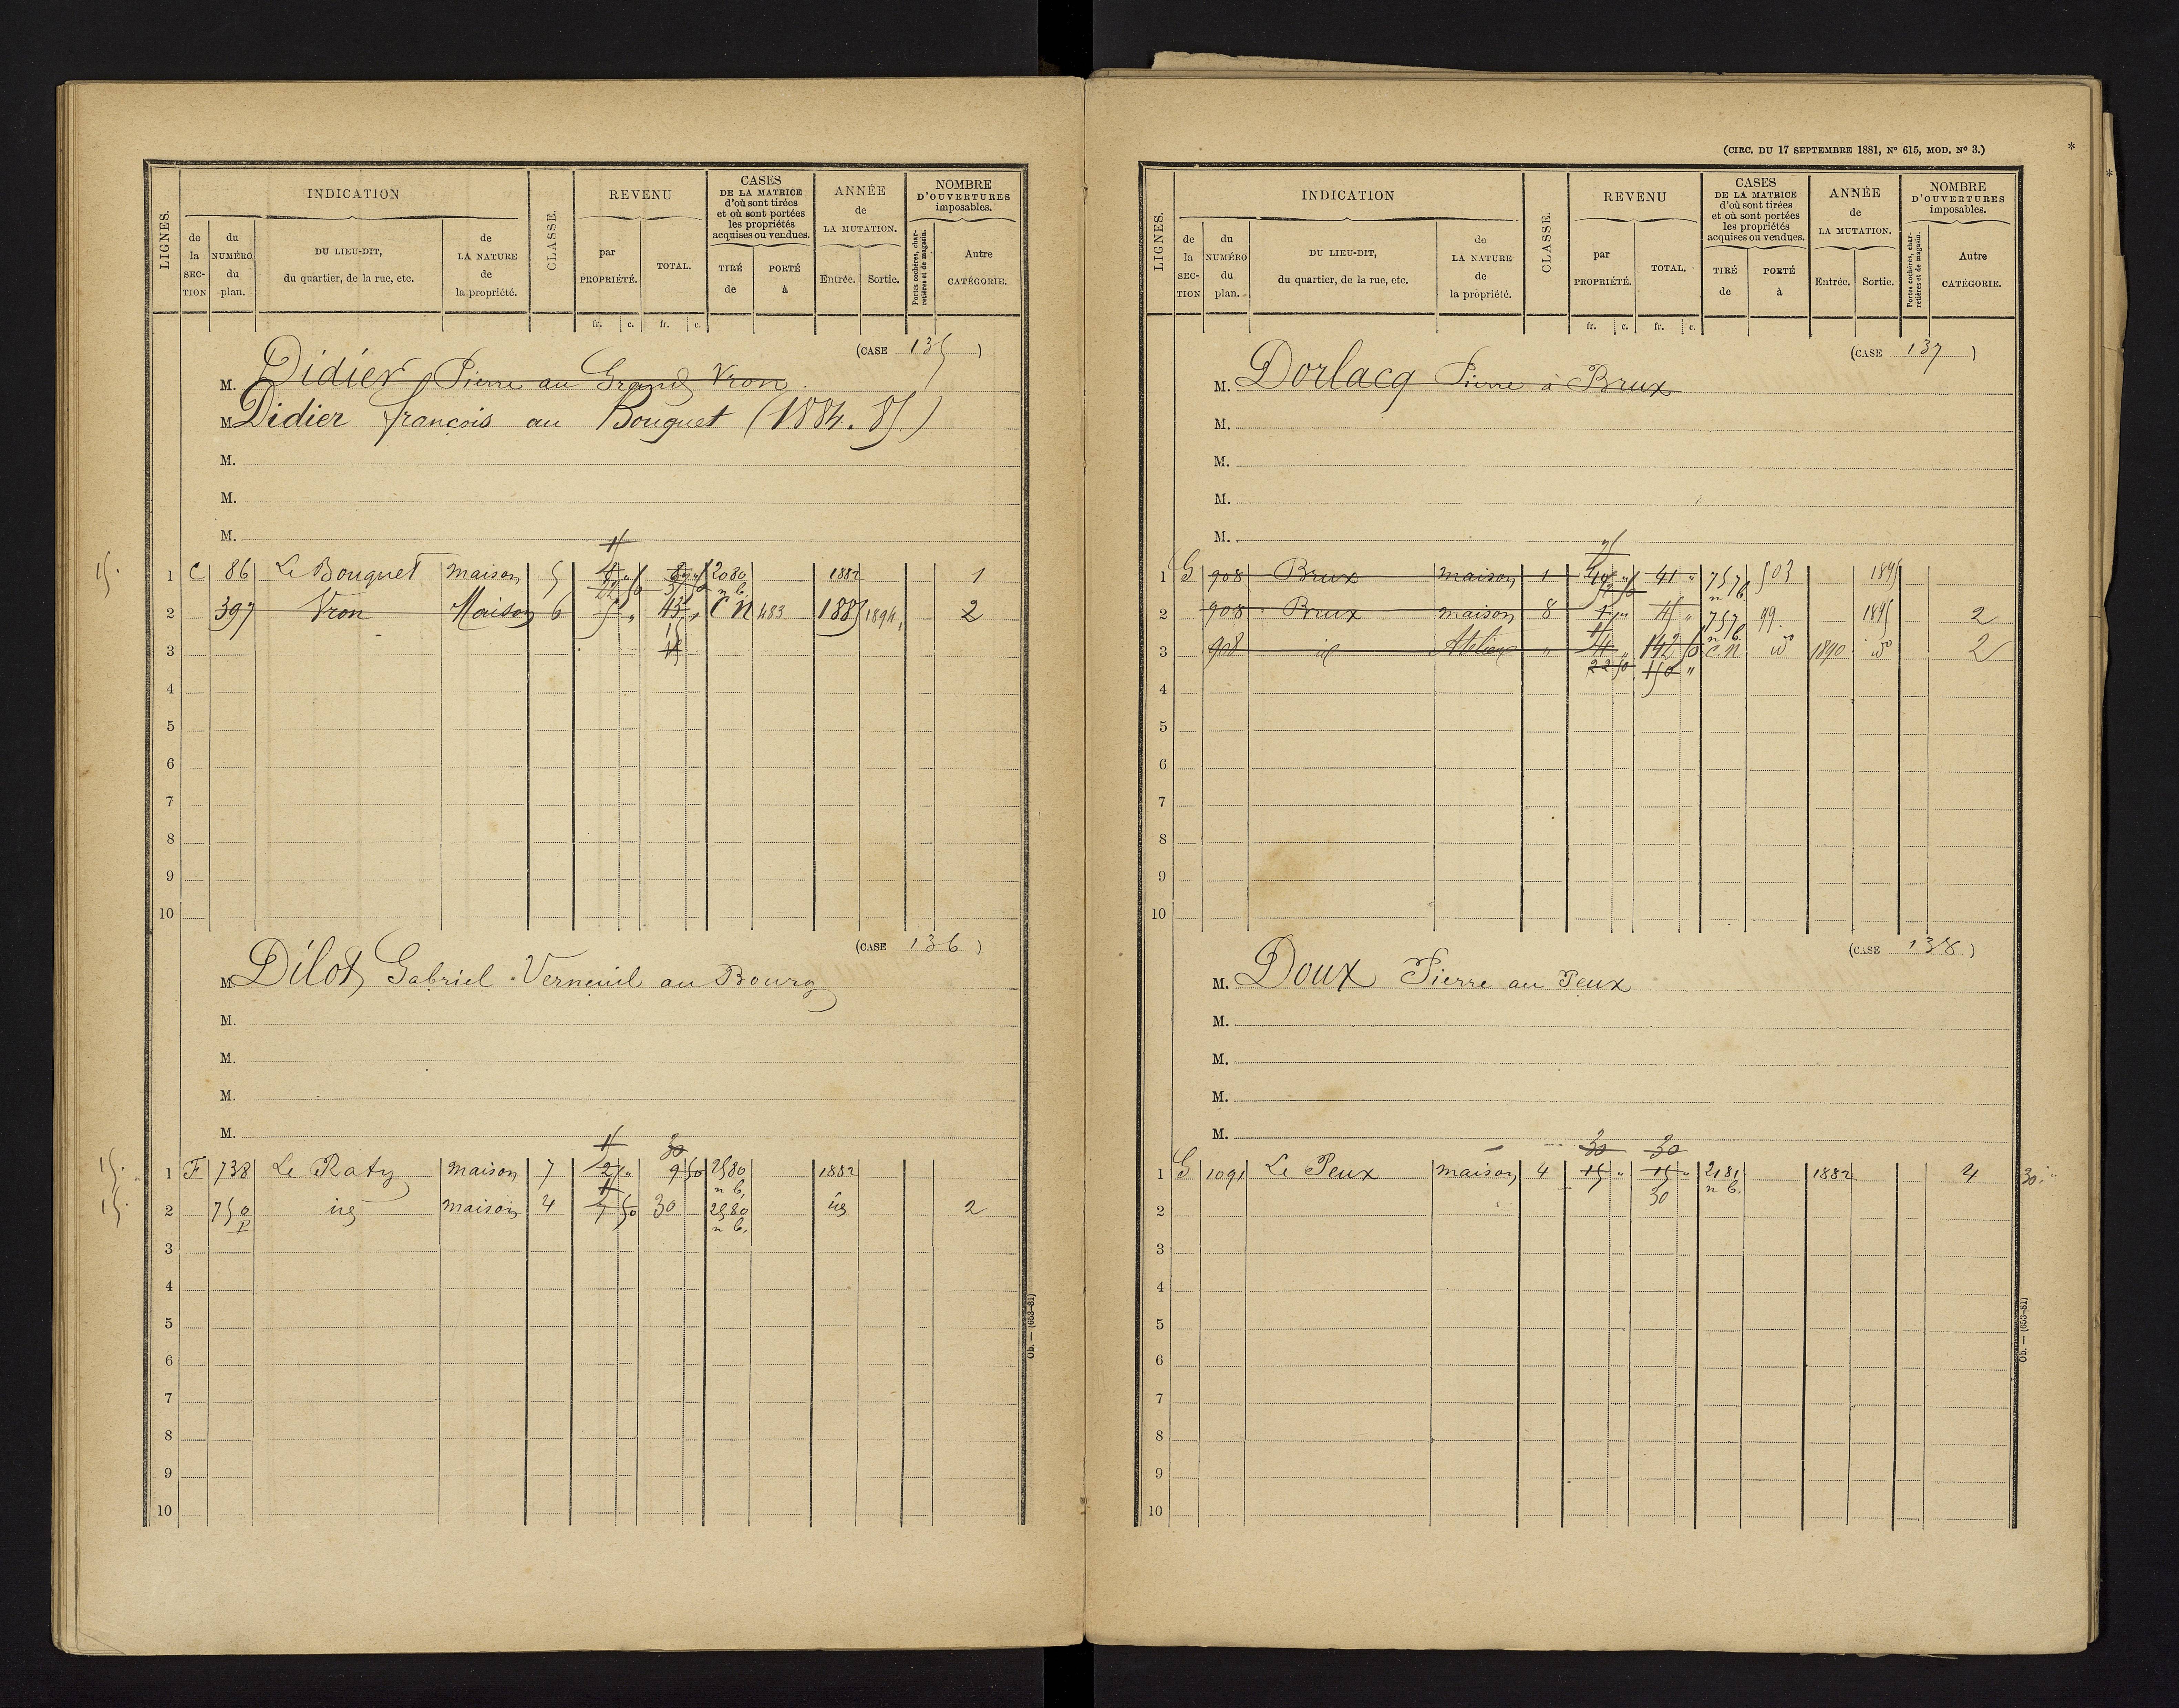 LIGNES.
INDICATION
de la SECTION
du NUMÉRO du plan.
DU LIEU-DIT, du quartier, de la rue, etc.
de LA NATURE de la propriété.
CLASSE.
REVENU
par PROPRIÉTÉ.
TOTAL.
fr. c. fr. c.
CASES DE LA MATRICE d'où sont tirées et où sont portées les propriétés acquises ou vendues.
TIRÉ de
PORTÉ à
ANNÉE de LA MUTATION.
Entrée. Sortie.
NOMBRE D'OUVERTURES imposables.
Portes cochères, charretières et de magasin.
Autre CATÉGORIE.
(CASE 135)
M. Didier Pierre au Grand Vron
M. Didier françois au Bouquet (1884. 85)
M.
M.
M.
15.
1 C 86 Le Bouquet maison 5 2080 n b. 1882 1
2 397 Vron Maison 6 5 " 43 CN 483 1885 1894 2
3 15
4
5
6
7
8
9
10
(CASE 136)
M. Dilot Gabriel Verneuil au Bourg
M.
M.
M.
M.
15 30
15. 1 F 738 Le Raty maison 7 2 " 9 50 2580 n b. 1882
15. 2 750 p id maison 4 7 50 30 2580 n b. id 2
3
4
5
6
7
8
9
10
Ob. — (653-81)
(CIRC. DU 17 SEPTEMBRE 1881, N° 615, MOD. N° 3.)
*
LIGNES.
INDICATION
de la SECTION
du NUMÉRO du plan.
DU LIEU-DIT, du quartier, de la rue, etc.
de LA NATURE de la propriété.
CLASSE.
REVENU
par PROPRIÉTÉ.
TOTAL.
fr. c. fr. c.
CASES DE LA MATRICE d'où sont tirées et où sont portées les propriétés acquises ou vendues.
TIRÉ de
PORTÉ à
ANNÉE de LA MUTATION.
Entrée. Sortie.
NOMBRE D'OUVERTURES imposables.
Portes cochères, charretières et de magasin.
Autre CATÉGORIE.
(CASE 137)
M. Dorlacq Pierre à Brux
M.
M.
M.
M.
1 G 908 Brux maison 1 41 " 757 n b. 503 1895
2 908 Brux maison 8 757 n b. 99. 1895 2
3 908 id Atelier " 142 50 C.N. id 1890 id 2
22 50 150 "
4
5
6
7
8
9
10
(CASE 138)
M. Doux Pierre au Peux
M.
M.
M.
M.
30 30
1 G 1091 Le Peux maison 4 15 " 15 " 2181 n b. 1882 4 30.
2 30
3
4
5
6
7
8
9
10
Ob. — (653-81)